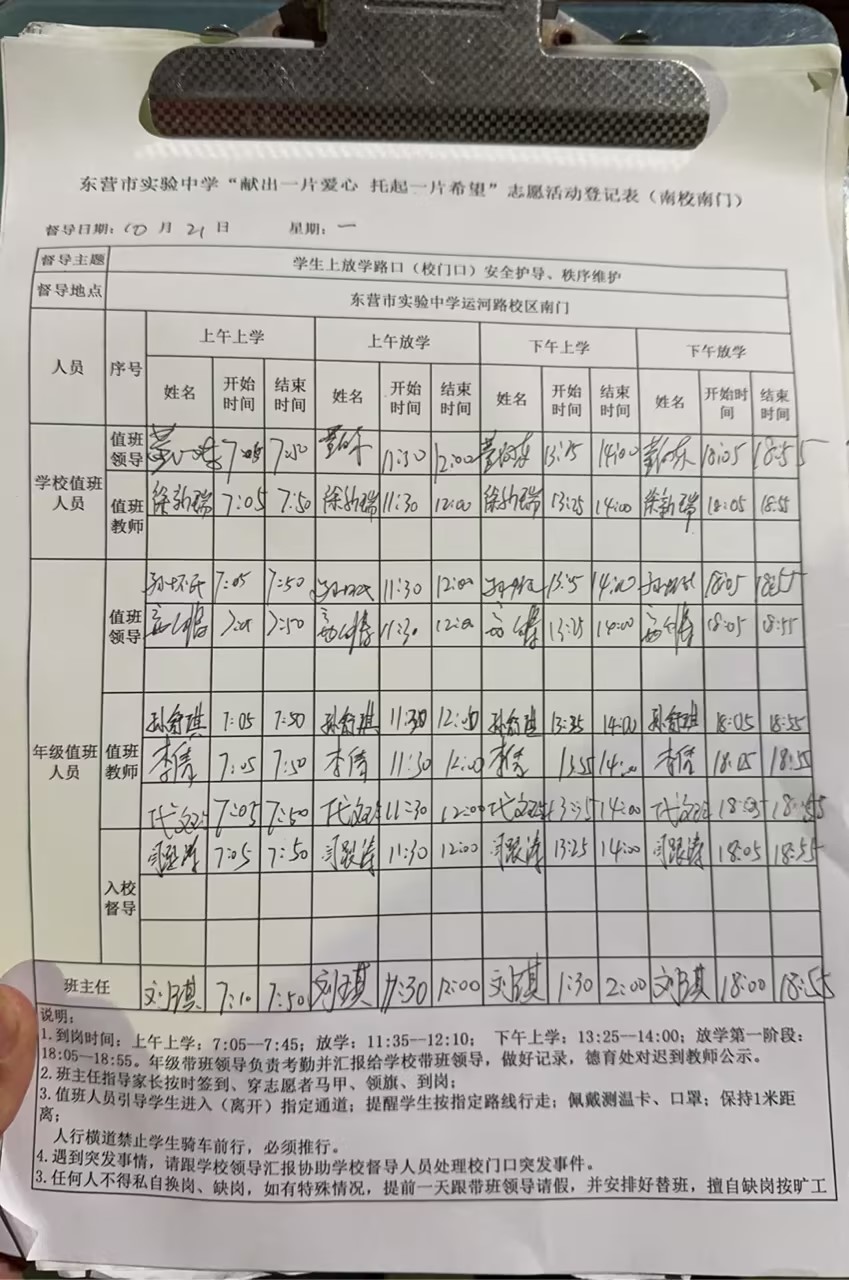 东营市实验中学“献出一片爱心 托起一片希望”志愿活动登记表（南校南门）
督导日期：10 月 21 日 星期：一
督导主题 学生上放学路口（校门口）安全护导、秩序维护
督导地点 东营市实验中学运河路校区南门
人员 序号 上午上学 上午放学 下午上学 下午放学
姓名 开始时间 结束时间 姓名 开始时间 结束时间 姓名 开始时间 结束时间 姓名 开始时间 结束时间
学校值班人员 值班领导 7:05 7:50 11:30 12:00 13:25 14:00 18:05 18:55
值班教师 徐新瑞 7:05 7:50 徐新瑞 11:30 12:00 徐新瑞 13:25 14:00 徐新瑞 18:05 18:55
年级值班人员 值班领导 7:05 7:50 11:30 12:00 14:00 18:05 18:55
7:50 11:30 12:00 13:25 14:00 18:05 18:55
值班教师 孙舒琪 7:05 7:50 孙舒琪 11:30 12:00 孙舒琪 13:35 14:00 孙舒琪 18:05 18:55
李倩 7:05 7:50 李倩 11:30 12:00 李倩 14:00 李倩 18:05 18:55
7:05 7:50 11:30 12:00 14:00 18:05 18:55
入校督导 7:05 7:50 11:30 12:00 13:25 14:00 18:05 18:55
班主任 刘琪 7:10 7:50 刘琪 11:30 12:00 刘琪 1:30 2:00 刘琪 18:00 18:55
说明：
1.到岗时间：上午上学：7:05—7:45；放学：11:35—12:10； 下午上学：13:25—14:00；放学第一阶段：
18:05—18:55。年级带班领导负责考勤并汇报给学校带班领导，做好记录，德育处对迟到教师公示。
2.班主任指导家长按时签到、穿志愿者马甲、领旗、到岗；
3.值班人员引导学生进入（离开）指定通道；提醒学生按指定路线行走；佩戴测温卡、口罩；保持1米距
离；
人行横道禁止学生骑车前行，必须推行。
4.遇到突发事情，请跟学校领导汇报协助学校督导人员处理校门口突发事件。
3.任何人不得私自换岗、缺岗，如有特殊情况，提前一天跟带班领导请假，并安排好替班，擅自缺岗按旷工